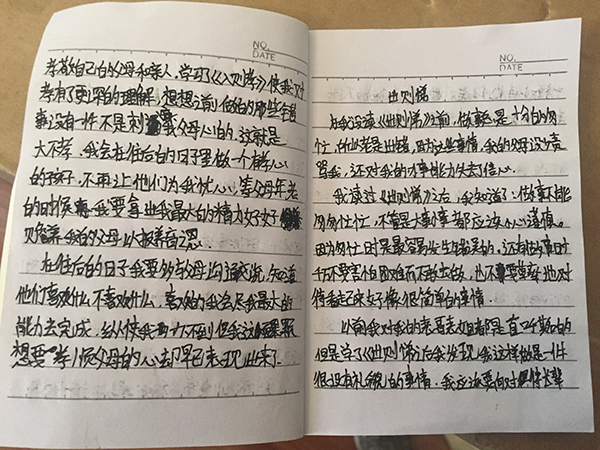 NO.
DATE
孝敬自己的父母和亲人，学习了《入则孝》使我对
孝有了更深的理解，想想之前做的那些错
事没有一件不是刺我父母心的，这就是
大不孝，我会在往后的日子里做一个有孝心
的孩子，不再让他们为我忧心，等父母年老
的时候我要拿出我最大的精力好好
赡养我的父母以报养育之恩
在往后的日子我要多与父母沟通交流，知道
他们喜欢什么不喜欢什么，喜欢的我会尽我最大的
能力去完成，纵使我力不到但我这
想要孝顺父母的心却早已表现出来了.
NO.
DATE
出则悌
在我没读《出则悌》之前，做事总是十分的匆
忙，所以老是出错，因为这些事情，我的父母没少责
骂我，还对我的办事能力失去了信心。
我读过《出则悌》之后，我知道了：做事不能
匆匆忙忙，不管是大事小事都应该小心谨慎。
因为匆忙时是最容易发生错误的，还有做事时
千万不要害怕困难而不敢去做，也不要草率地对
待看起来好像很简单的事情.
以前我对我的表哥表姐都是直呼其名的
但是学了《出则悌》后我发现，我这样做是一件
很没有礼貌的事情，我应该要向对待长辈